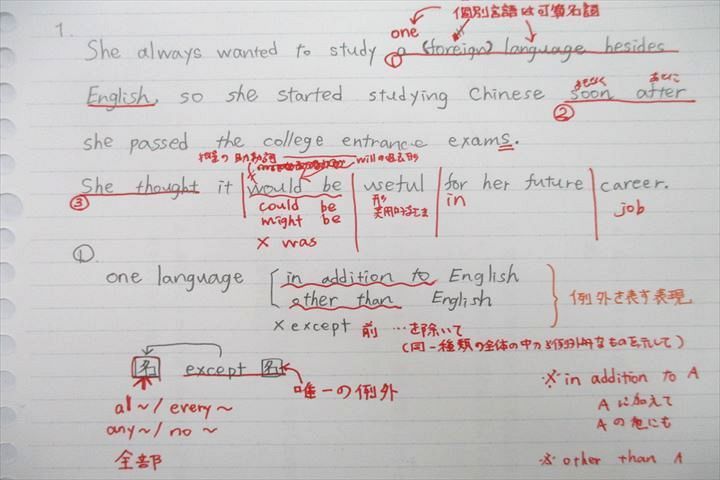 one 個別言語は可算名詞
1.
She always wanted to study a (foreign) language besides
①
English, so she started studying Chinese soon after
②
she passed the college entrance exams.
推量の助動詞 willの過去形
She thought it would be useful for her future career.
③ could be 形 in job
might be
× was
①
one language in addition to English
other than English
例外を表す表現
× except 前 …を除いて
(同一種類の全体の中から例外的なものを示して)
名 except 名
唯一の例外
al~/every~
any~/no~
全部
※ in addition to A
Aに加えて
Aの他にも
※ other than A